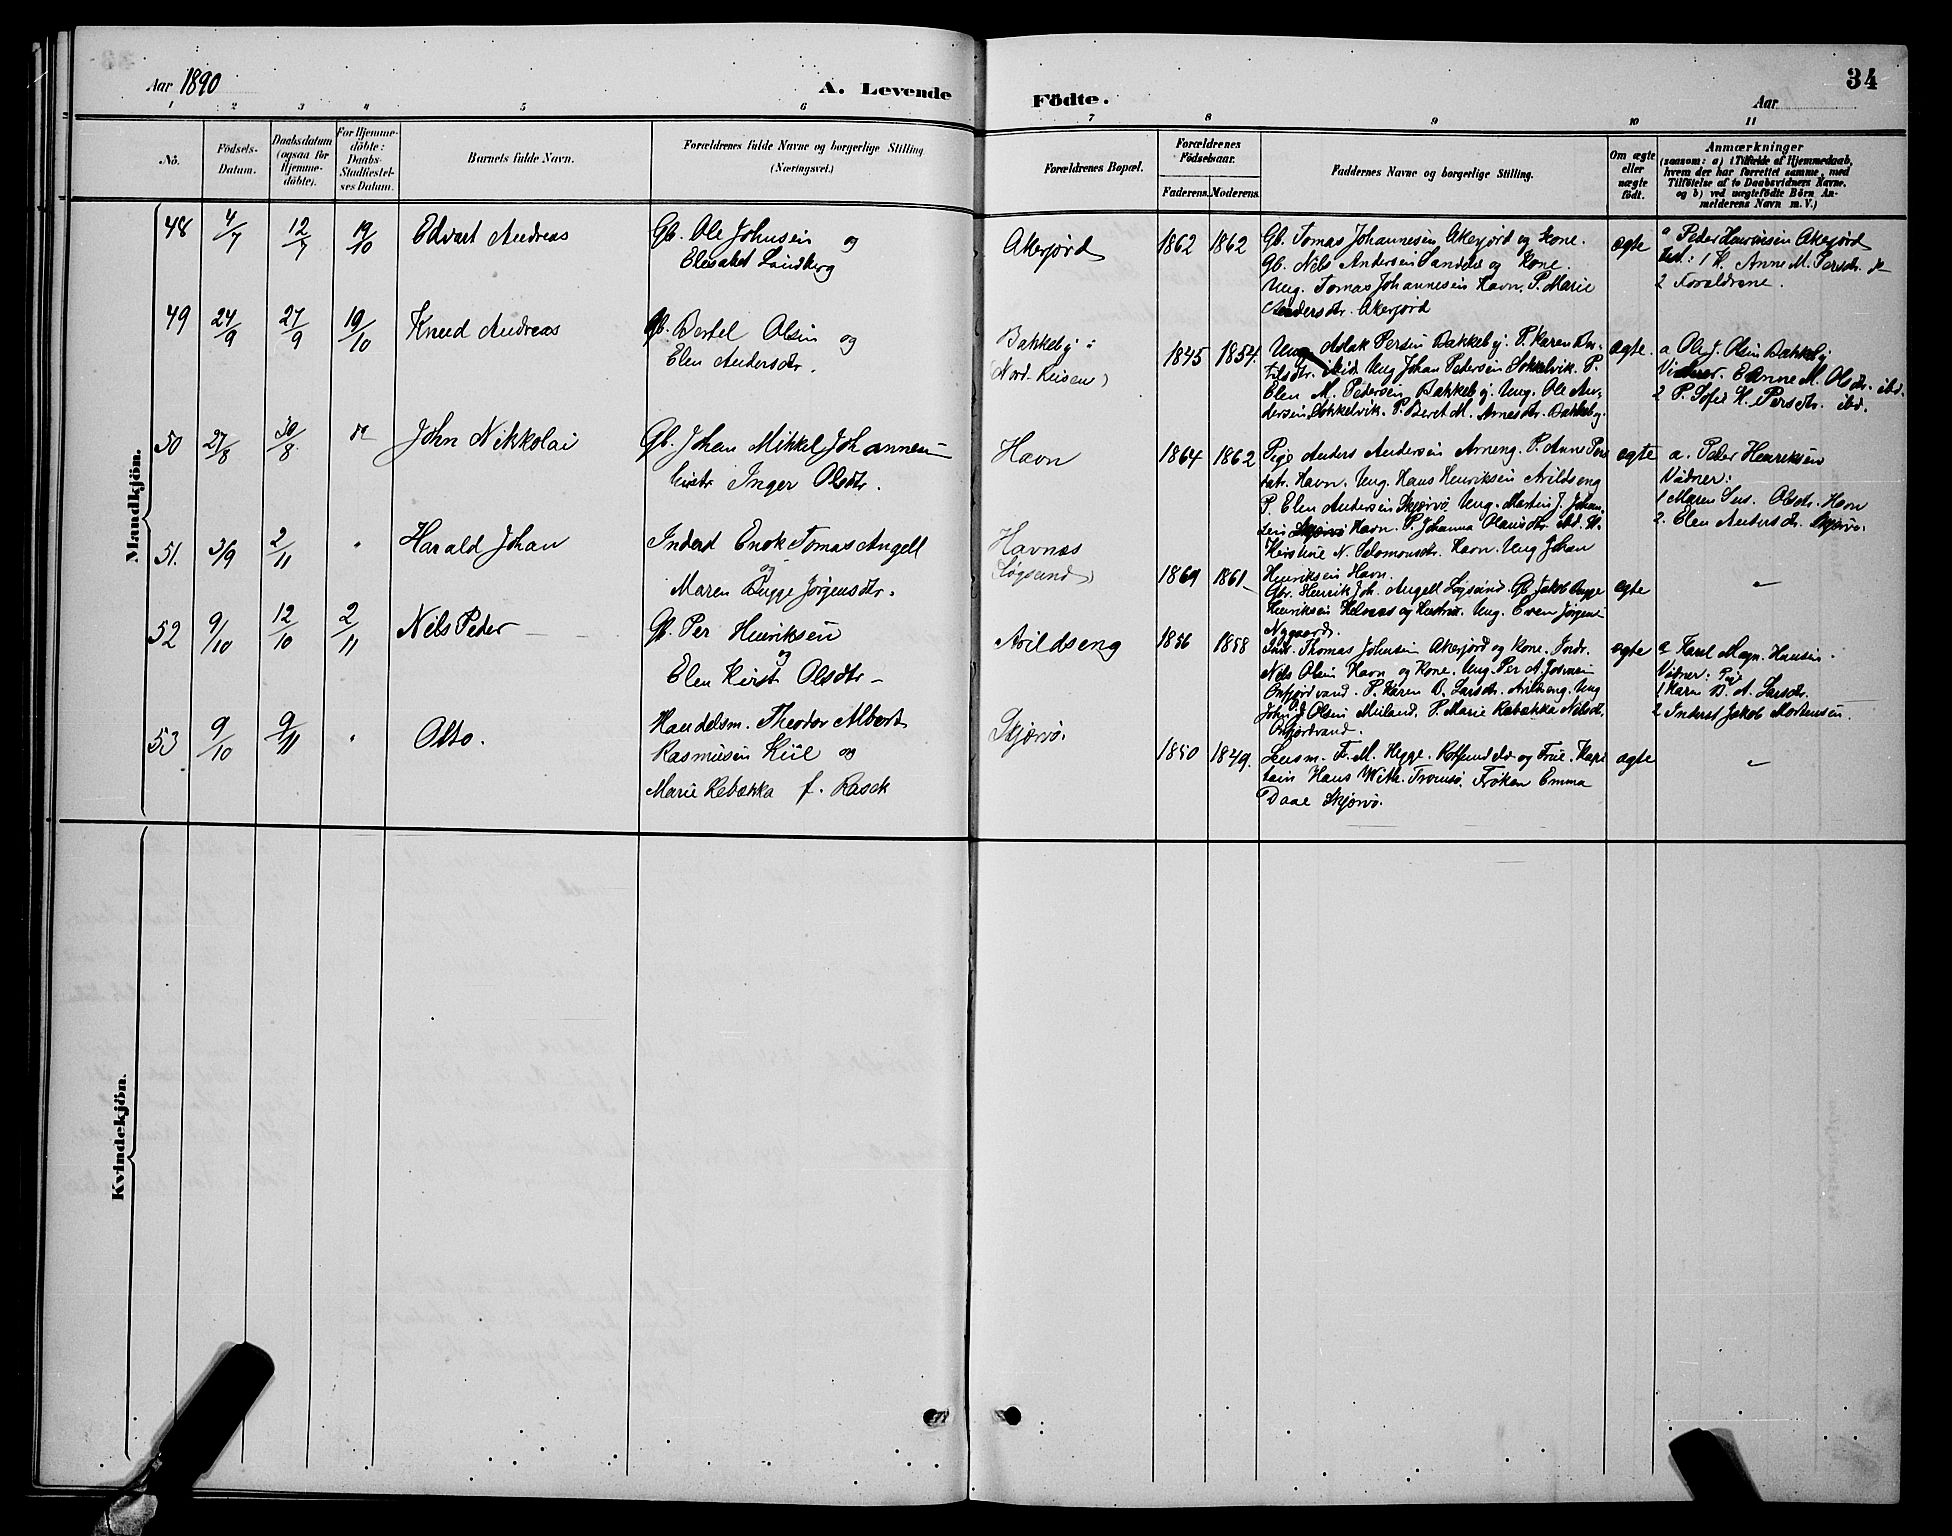 Aar 1890
A. Levende
Födte.
34
Aar
1 2 3 4 5 6 7 8 9 10 11
No.
Födsels-
Datum.
Daabsdatum
(ogsaa for
Hjemme-
döbte).
For Hjemme-
döbte:
Daabs-
Stadfæstel-
ses Datum.
Barnets fulde Navn.
Forældrenes fulde Navne og borgerlige Stilling
(Næringsvei.)
Forældrenes Bopæl.
Forældrenes
Födselsaar.
Faderens. Moderens.
Faddernes Navne og borgerlige Stilling.
Om ægte
eller
uægte
födt.
Anmærkninger
(saasom: a) i Tilfælde af Hjemmedaab,
hvem der har forrettet samme, med
Tilföielse af to Daabsvidners Navne,
og b) ved uægtefödte Börn An-
melderens Navn m. V.)
Mandkjön.
48 4/7 12/7 19/10 Edvart Andreas
Gb. Ole Johnsen og
Elisabet Lindberg
Akerfjord 1862 1862
Gb. Tomas Johannesen Akerfjord og Kone.
Gb. Nils Andersen Sandde og Kone.
Ung. Tomas Johannesen Havn. P. Marie
Andersdtr. Akerfjord
ægte
a Peder Henriksen Akerfjord
1 K. Anne M. Persdtr.
2 Forældrene.
49 24/9 27/9 19/10 Knud Andreas
Gb. Bertel Olsen og
Elen Andersdtr.
Bakkeby i
(Nord-Reisen) 1845 1854.
Ung. Aslak Persen Bakkeby. P. Karen Ber-
tilsdtr. ibid. Ung Johan Pedersen Sokkelvik. P.
Elen M. Pedersen Bakkeby. Ung. Ole An-
dersen Sokkelvik. P. Beret M. Arnesdtr. Bakkeby.
ægte.
a. Ole J. Olsen Bakkeby
Vidner. Anne M. Olsdtr. ibd.
2 P. Sofie K. Persdtr. ibd.
50 27/8 30/8 John Nikkolai
Gb. Johan Mikkel Johannesen
Inger Olsdtr.
Havn 1864 1862
Anders Andersen Arneng. P. Anne Per
Havn. Ung. Hans Henriksen Arildseng
P. Elen Andersen Skjærvø. Ung. Martin J. Johan-
sen Skjærvø Havn. P. Johanna Olausdtr. ibd. K.
Kirstine N. Salomonsdtr. Havn. Ung Johan
Henriksen Havn.
ægte
a. Peder Henriksen
Vidner:
1 Maren Sus. Olsdtr. Havn
2. Elen Andersdtr. Skjærvø.
51. 3/9 2/11 " Harald Johan
Inderst Enok Tomas Angell
og
Maren Bugge Jørgensdtr.
Havnæs
Løgsund) 1869 1861
Gbr. Henrik Joh. Angell Løgsund. Gb. Jakob Bugge
Henriksen Helnæs og Hustru. Ung. Even Jørgens
Nygaard.
ægte "
52 9/10 12/10 2/11 Nils Peder
Gb. Per Henriksen
og
Elen Kirst Olsdtr
Arildseng 1856 1858
Ind. Thomas Johnsen Akerfjord og Kone. Indr.
Nils Olsen Havn og Kone. Ung. Per A. Josvasen
Oxfjordvand. P. Karen B. Larsdtr. Arildseng. Ung
John J Olsen Meiland. P. Marie Rebækka Nilsdt.
Oxfjordvand.
ægte
a Karl Magn. Hansen.
Vidner: Pige
1 Karen B. A. Larsdtr.
2 Inderst Jakob Mortensen.
53 9/10 9/11 " Otto.
Handelsm. Theodor Albert
Rasmusen Kiil og
Marie Rebækka f. Rasch
Skjærvø. 1850 1849.
Lensm. F. M. Hegge. Rotsundelv og Frue. Kap-
tain Hans With. Tromsø. Frøken Emma
Daae Skjærvø.
ægte "
Kvindekjön.